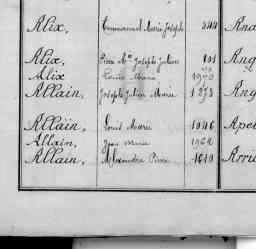 Alix, Emmanuel Marie Joseph 544 Ana
Alix, Pierre Me Joseph Julien 191 Ang
Alix Louis Marie 1950 Ang
Allain, Joseph Julien Marie 1273 Ang
Allain, Louis Marie 1046 Apé
Allain, Jean Marie 1962
Allain, Alexandre Pierre 1619 Arri